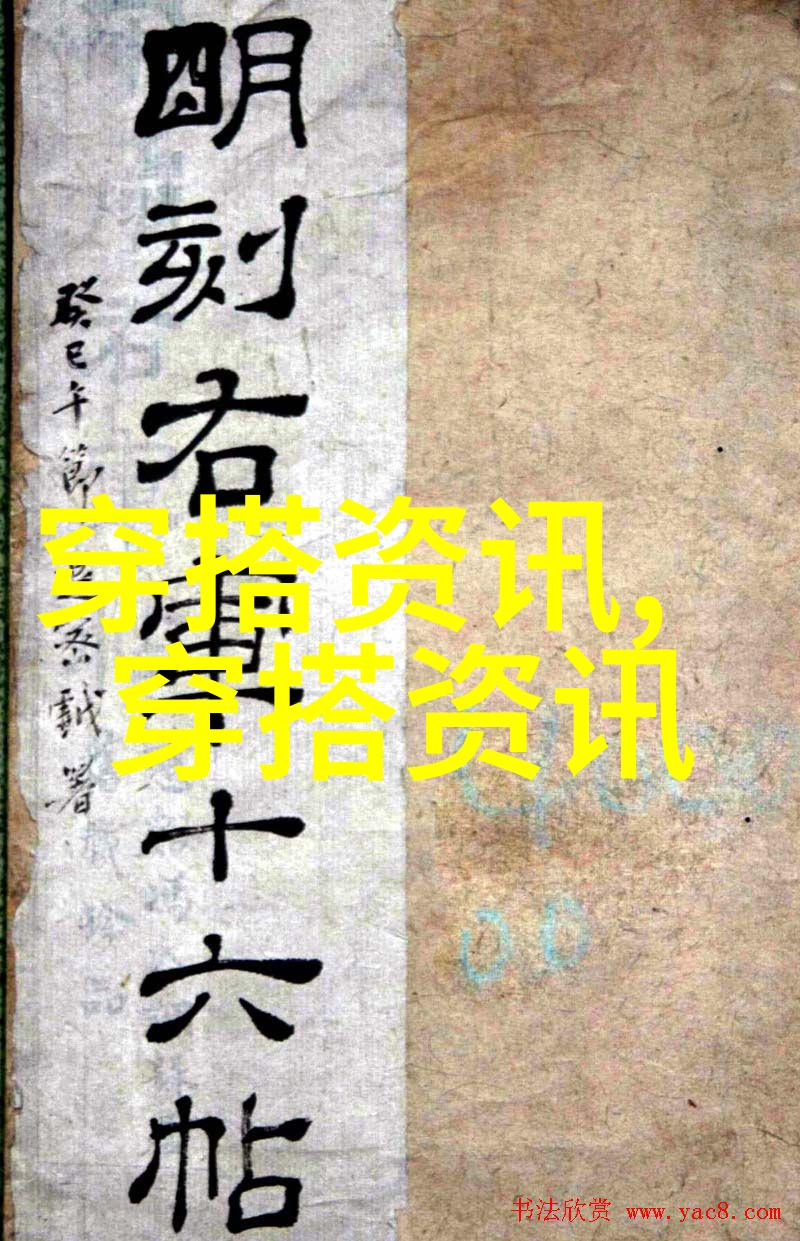 朙刻右軍十六帖
癸巳午節
署
穿搭资讯,
穿搭资讯
书法欣赏 www.yac8.com